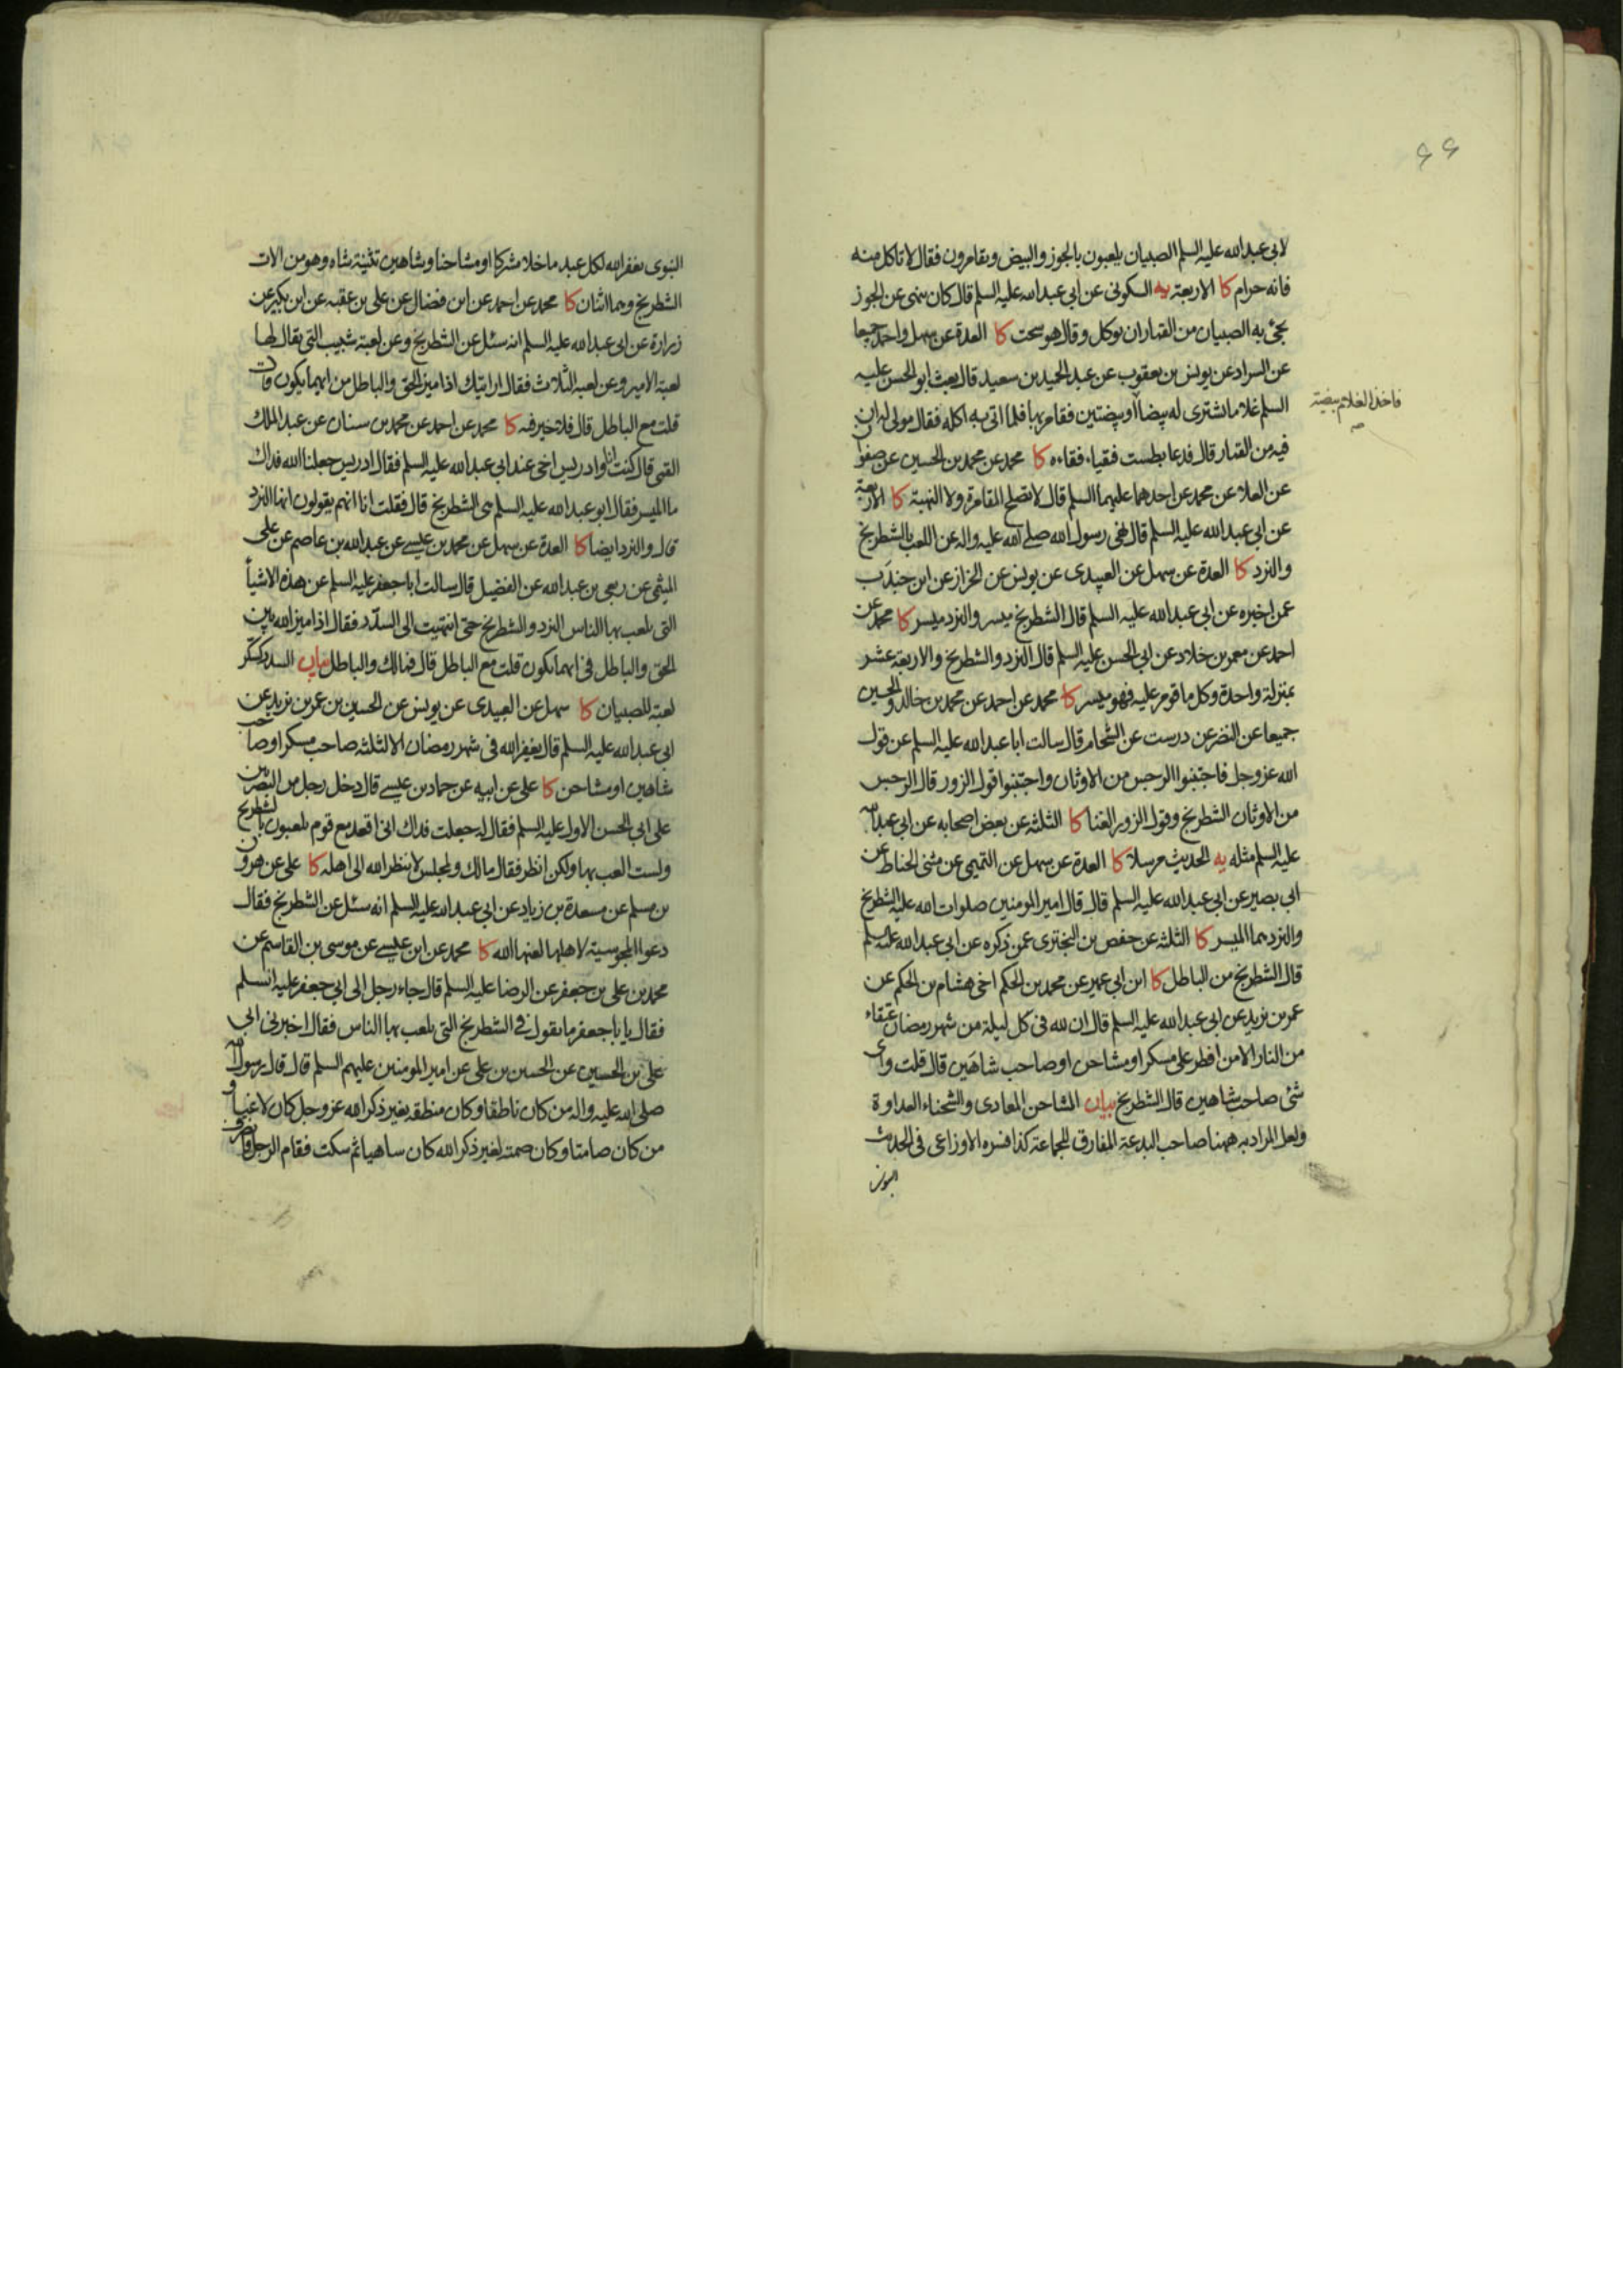 ٦٦
لابي عبدالله عليه السلم الصبيان يلعبون بالجوز والبيض ويقامرون فقال لا تاكل منه
فانه حرام كا الاربعة يه السكوني عن ابي عبدالله عليه السلم قال كان ينهى عن الجوز
يجئ به الصبيان من القمار ان يوكل وقال هو سحت كا العدة عن سهل واحمد جميعا
عن السراد عن يونس بن يعقوب عن عبد الحميد بن سعيد قال بعث ابو الحسن عليه
السلم غلاما يشتري له بيضا فاخذ الغلام بيضة او بيضتين فقامر بها فلما اتى به اكله فقال مولى له ان
فاخذ الغلام بيضة
فيه من القمار قال فدعا بطست فقياء فقاءه كا محمد عن محمد بن الحسين عن صفوان
عن العلا عن محمد عن احدهما عليهما السلم قال لا تصلح المقامرة ولا النهبة كا الاربعة
عن ابي عبدالله عليه السلم قال نهى رسول الله صلى الله عليه واله عن اللعب بالشطرنج
والنرد كا العدة عن سهل عن العبيدي عن يونس عن الخراز عن ابن جندب
عمن اخبره عن ابي عبدالله عليه السلم قال الشطرنج ميسر والنرد ميسر كا محمد عن
احمد عن معمر بن خلاد عن ابي الحسن عليه السلم قال النرد والشطرنج والاربعة عشر
بمنزلة واحدة وكل ما قومر عليه فهو ميسر كا محمد عن احمد عن محمد بن خالد والحسين
جميعا عن النضر عن درست عن الشحام قال سالت ابا عبدالله عليه السلم عن قول
الله عز وجل فاجتنبوا الرجس من الاوثان واجتنبوا قول الزور قال الرجس
من الاوثان الشطرنج وقول الزور الغنا كا الثلثة عن بعض اصحابه عن ابي عبدالله
عليه السلم مثله يه الحديث مرسلا كا العدة عن سهل عن التميمي عن مثنى الحناط عن
ابي بصير عن ابي عبدالله عليه السلم قال قال امير المومنين صلوات الله عليه الشطرنج
والنرد هما الميسر كا الثلثة عن حفص بن البختري عمن ذكره عن ابي عبدالله عليه السلم
قال الشطرنج من الباطل كا ابن ابي عمير عن محمد بن الحكم اخي هشام بن الحكم عن
عمر بن يزيد عن ابي عبدالله عليه السلم قال ان لله في كل ليلة من شهر رمضان عتقاء
من النار الا من افطر على مسكر او مشاحن او صاحب شاهين قال قلت واي
شئ صاحب شاهين قال الشطرنج بيان المشاحن المعادي والشحناء العداوة
ولعل المراد به ههنا صاحب البدعة المفارق للجماعة كذا فسره الاوزاعي في الحديث
النبوي
النبوي يغفر الله لكل عبد ما خلا مشركا او مشاحنا وشاهين تثنية شاه وهو من الات
الشطرنج وهما اثنان كا محمد عن احمد عن ابن فضال عن علي بن عقبه عن ابن بكير عن
زرارة عن ابي عبدالله عليه السلم انه سئل عن الشطرنج وعن لعبة شبيب التي يقال لها
لعبة الامير وعن لعبة الثلاث فقال ارايتك اذا ميز الحق والباطل من ايهما يكون قال
قلت مع الباطل قال فلا خير فيه كا محمد عن احمد عن محمد بن سنان عن عبد الملك
القمي قال كنت انا وادريس اخي عند ابي عبدالله عليه السلم فقال ادريس جعلنا الله فداك
ما الميسر فقال ابو عبدالله عليه السلم هي الشطرنج قال فقلت انا انهم يقولون انها النرد
قال والنرد ايضا كا العدة عن سهل عن محمد بن عيسى عن عبدالله بن عاصم عن علي
الميثمي عن ربعي بن عبدالله عن الفضيل قال سالت ابا جعفر عليه السلم عن هذه الاشياء
التي يلعب بها الناس النرد والشطرنج حتى انتهيت الى السدّر فقال اذا ميز الله بين
الحق والباطل في ايهما يكون قلت مع الباطل قال فمالك والباطل بيان السدر كسكر
لعبة للصبيان كا سهل عن العبيدي عن يونس عن الحسين بن عمر بن يزيد عن
ابي عبدالله عليه السلم قال يغفر الله في شهر رمضان الا لثلثة صاحب مسكر او صاحب
شاهين او مشاحن كا علي عن ابيه عن حماد بن عيسى قال دخل رجل من البصريين
على ابي الحسن الاول عليه السلم فقال له جعلت فداك اني اقعد مع قوم يلعبون بالشطرنج
ولست العب بها ولكن انظر فقال مالك ولمجلس لا ينظر الله الى اهله كا علي عن هرون
بن مسلم عن مسعدة بن زياد عن ابي عبدالله عليه السلم انه سئل عن الشطرنج فقال
دعوا المجوسية لاهلها لعنها الله كا محمد عن ابن عيسى عن موسى بن القاسم عن
محمد بن علي بن جعفر عن الرضا عليه السلم قال جاء رجل الى ابي جعفر عليه السلم
فقال يا با جعفر ما تقول في الشطرنج التي يلعب بها الناس فقال اخبرني ابي
علي بن الحسين عن الحسين بن علي عن امير المومنين عليهم السلم قال قال رسول الله
صلى الله عليه واله من كان ناطقا وكان منطقه بغير ذكر الله عز وجل كان لاغيا و
من كان صامتا وكان صمته لغير ذكر الله كان ساهيا ثم سكت فقام الرجل فانصرف